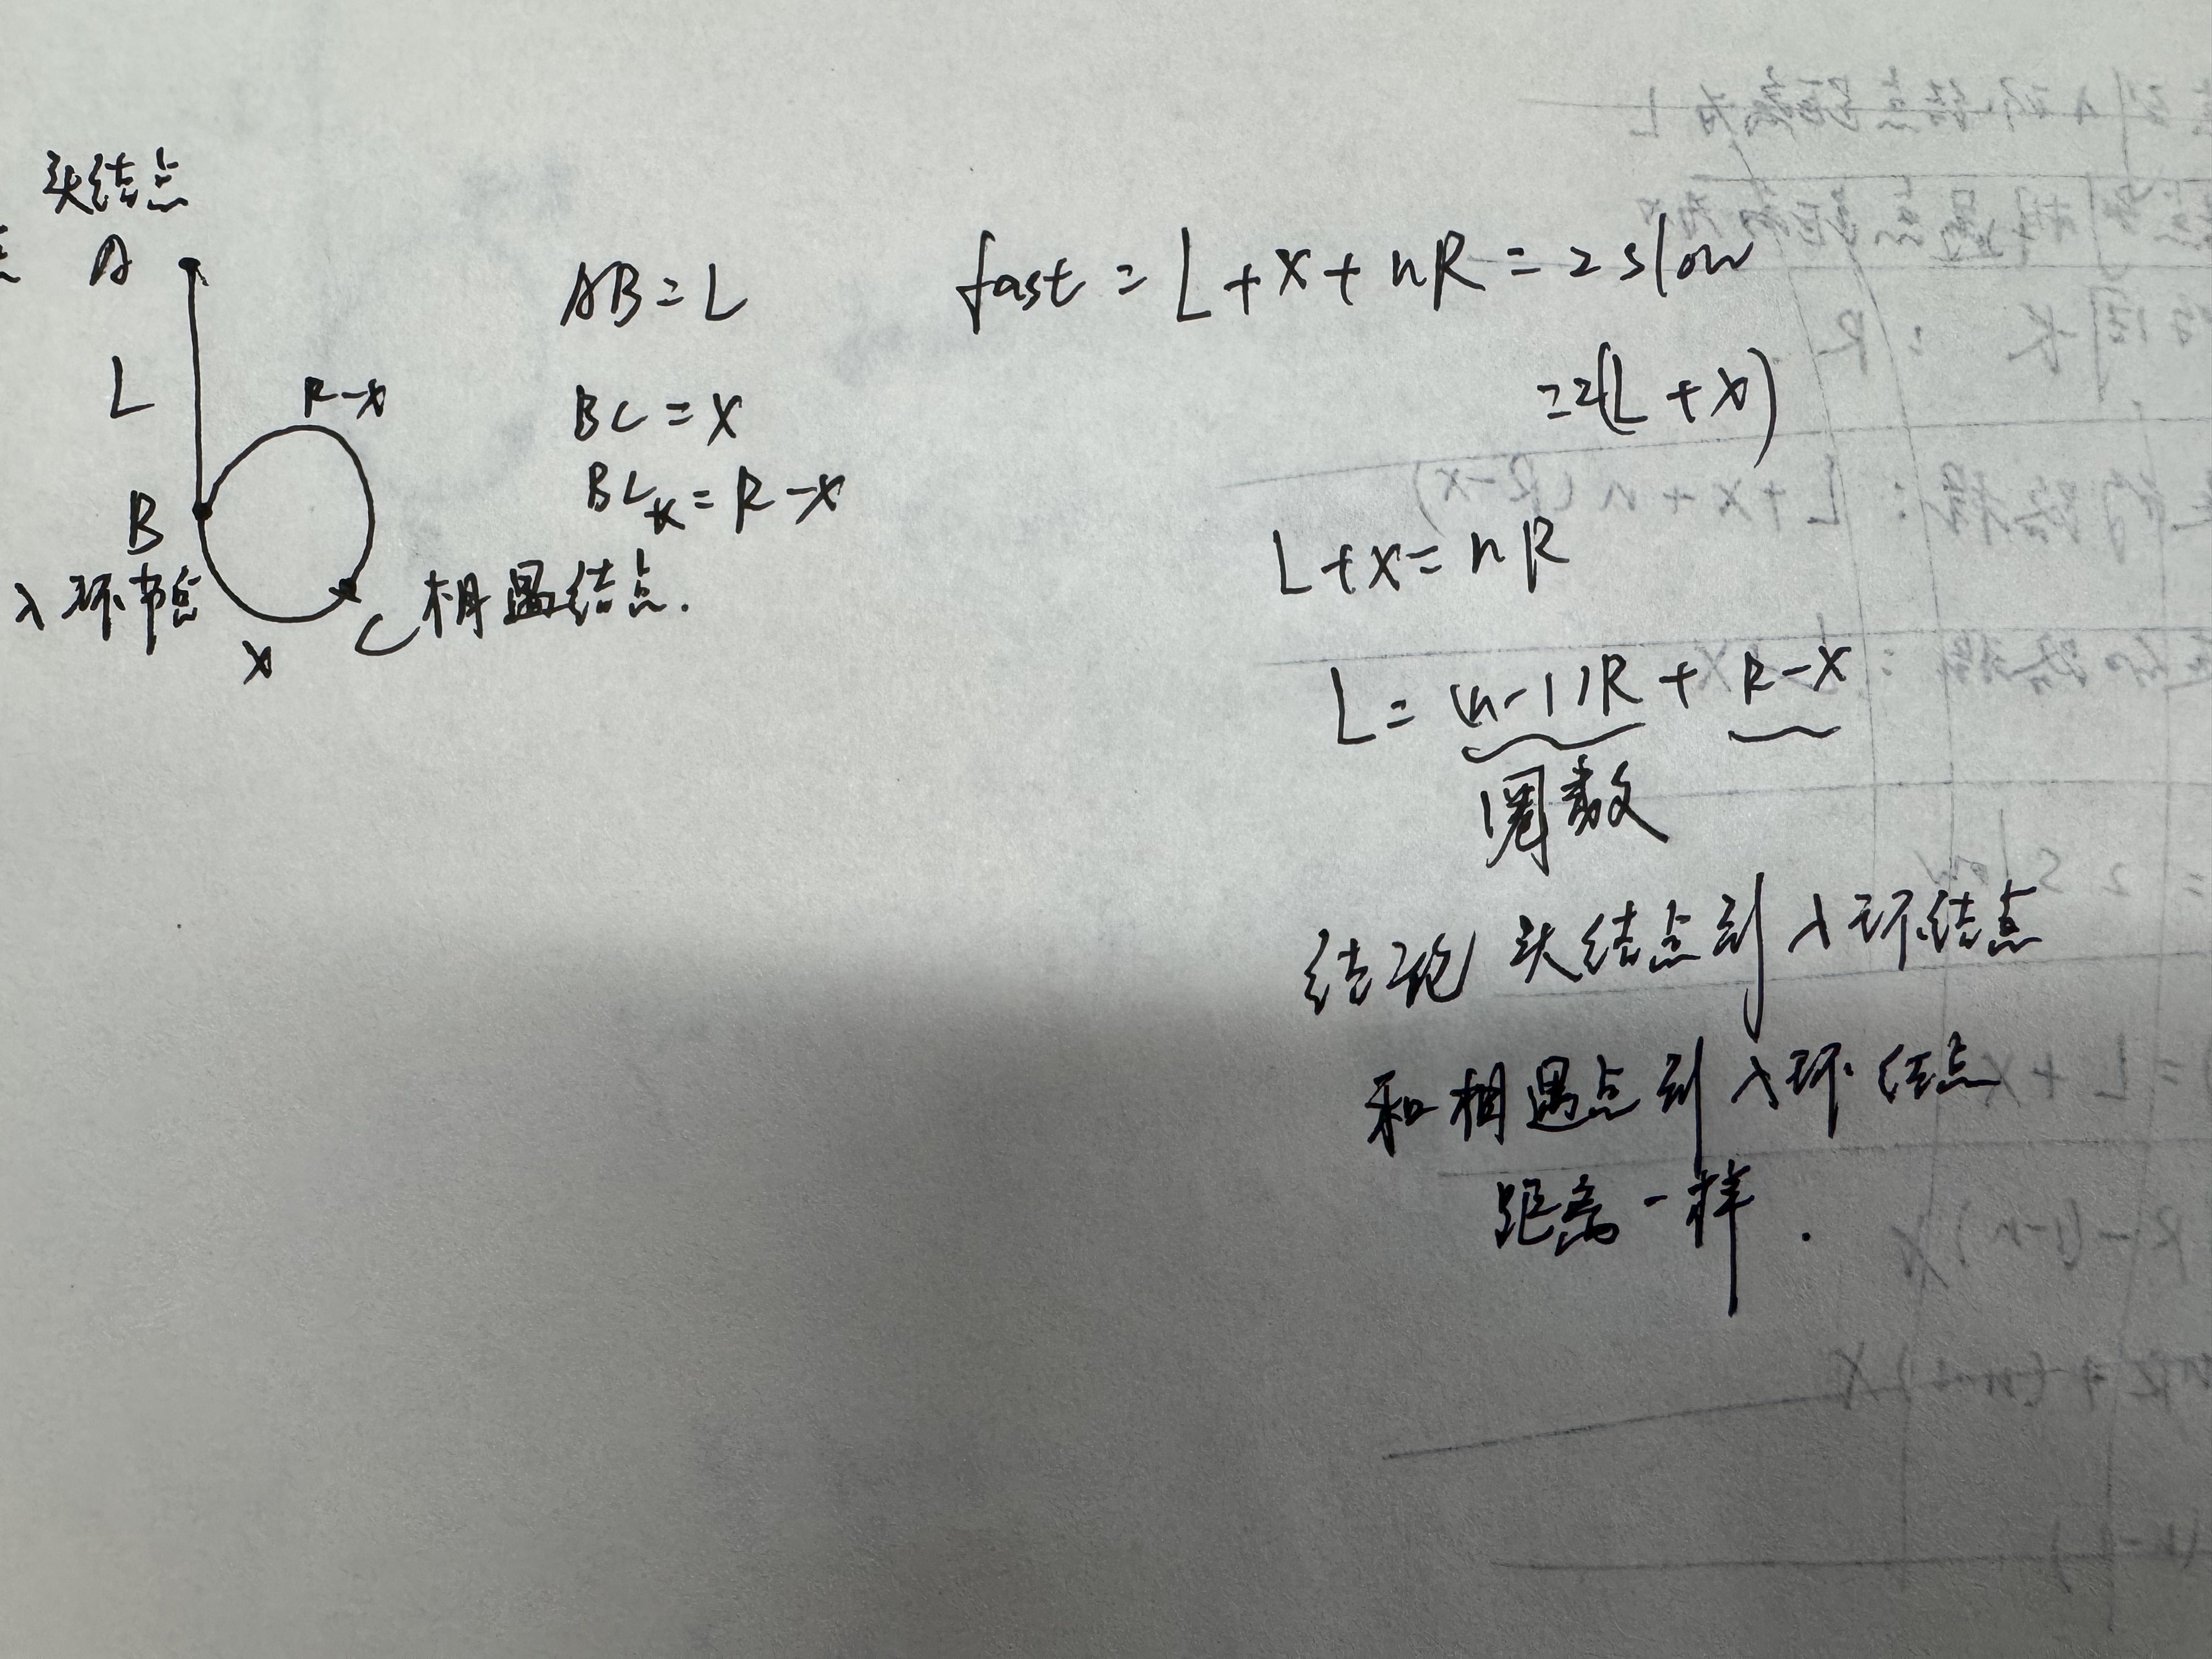 头结点
A
L
R-x
B
入环节点
x
C 相遇结点.
AB=L
BC=x
BC长=R-x
fast = L+x+nR = 2slow
=2(L+x)
L+x=nR
L= (n-1)R + R-x
圈数
结论 头结点到入环结点
和相遇点到入环结点
距离一样.